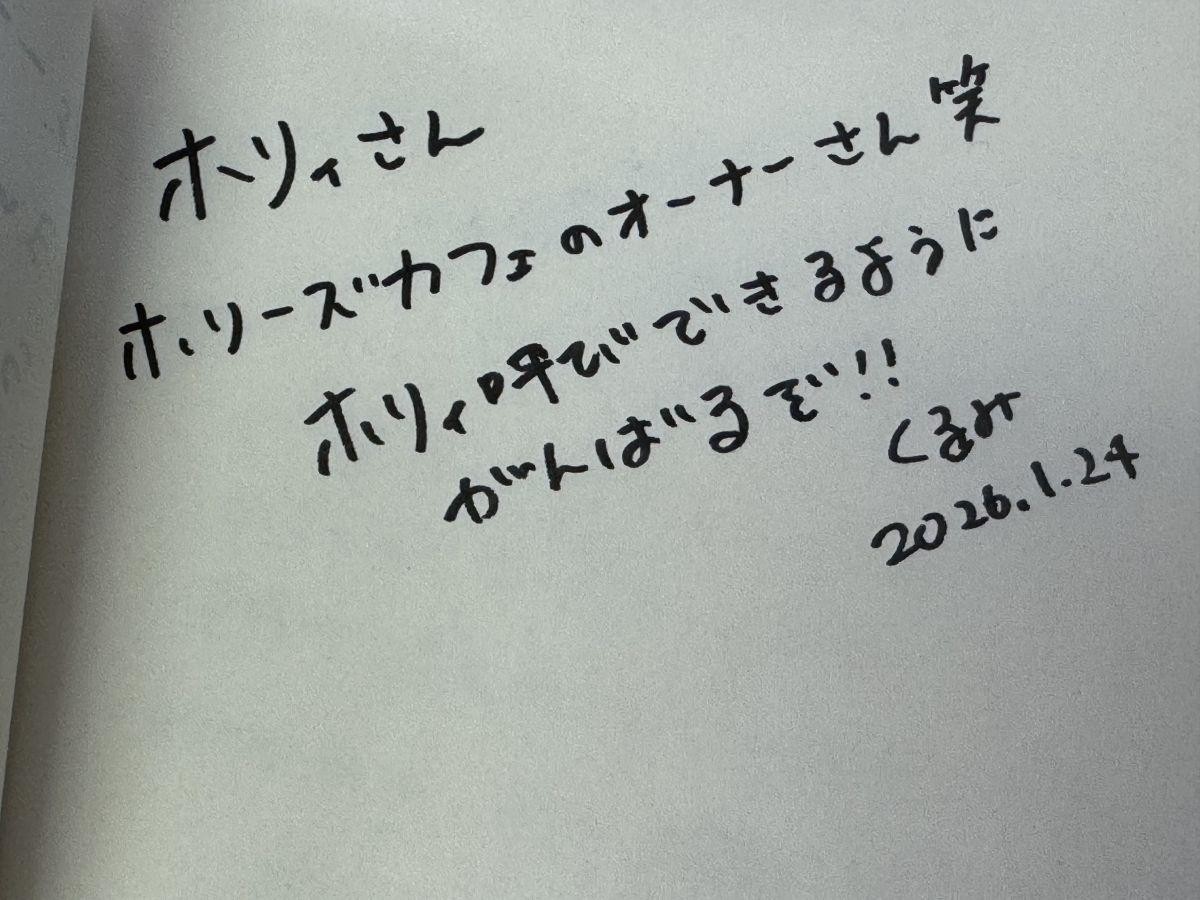 ホリィさん
ホリーズカフェのオーナーさん笑
ホリィ呼びできるように
がんばるぞ!!
くるみ
2026.1.24